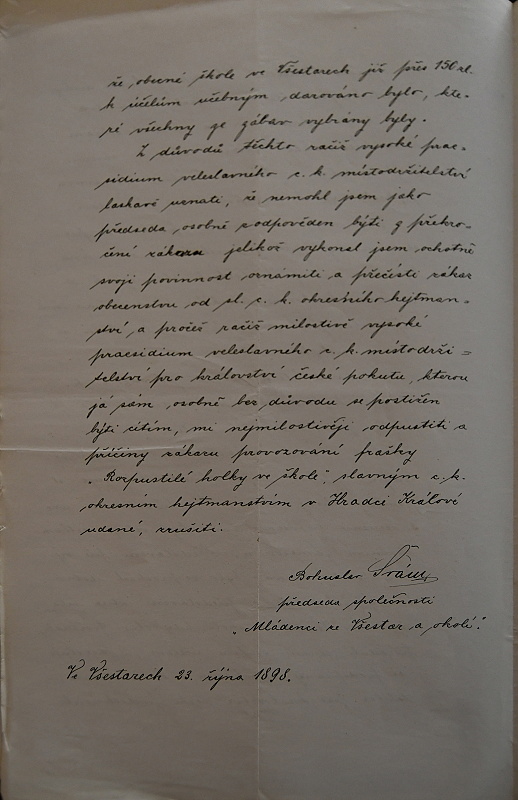 že, obecné škole ve Všestarech již přes 150 zl.
k účelům učebným, darováno bylo, kte-
ré všechny ze zábav vybrány byly.
Z důvodů těchto račiž vysoké prae-
sidium veleslavného c. k. místodržitelství
laskavě uznati, že nemohl jsem jako
předseda, osobně zodpověden býti z překro-
čení zákazu jelikož vykonal jsem ochotně
svoji povinnost oznámiti a přečísti zákaz
obecenstvu od sl. c. k. okresního hejtman-
ství a pročež račiž milostivě vysoké
praesidium veleslavného c. k. místodrži =
telství pro království české pokutu, kterou
já sám, osobně bez důvodu se postižen
býti cítím, mi nejmilostivěji odpustiti a
příčiny zákazu provozování frašky
„Rozpustilé holky ve škole", slavným c. k.
okresním hejtmanstvím v Hradci Králové
udané, zrušiti.
Bohuslav Šrám,
předseda společnosti
„Mládenci ze Všestar a okolí."
Ve Všestarech 23. října 1898.